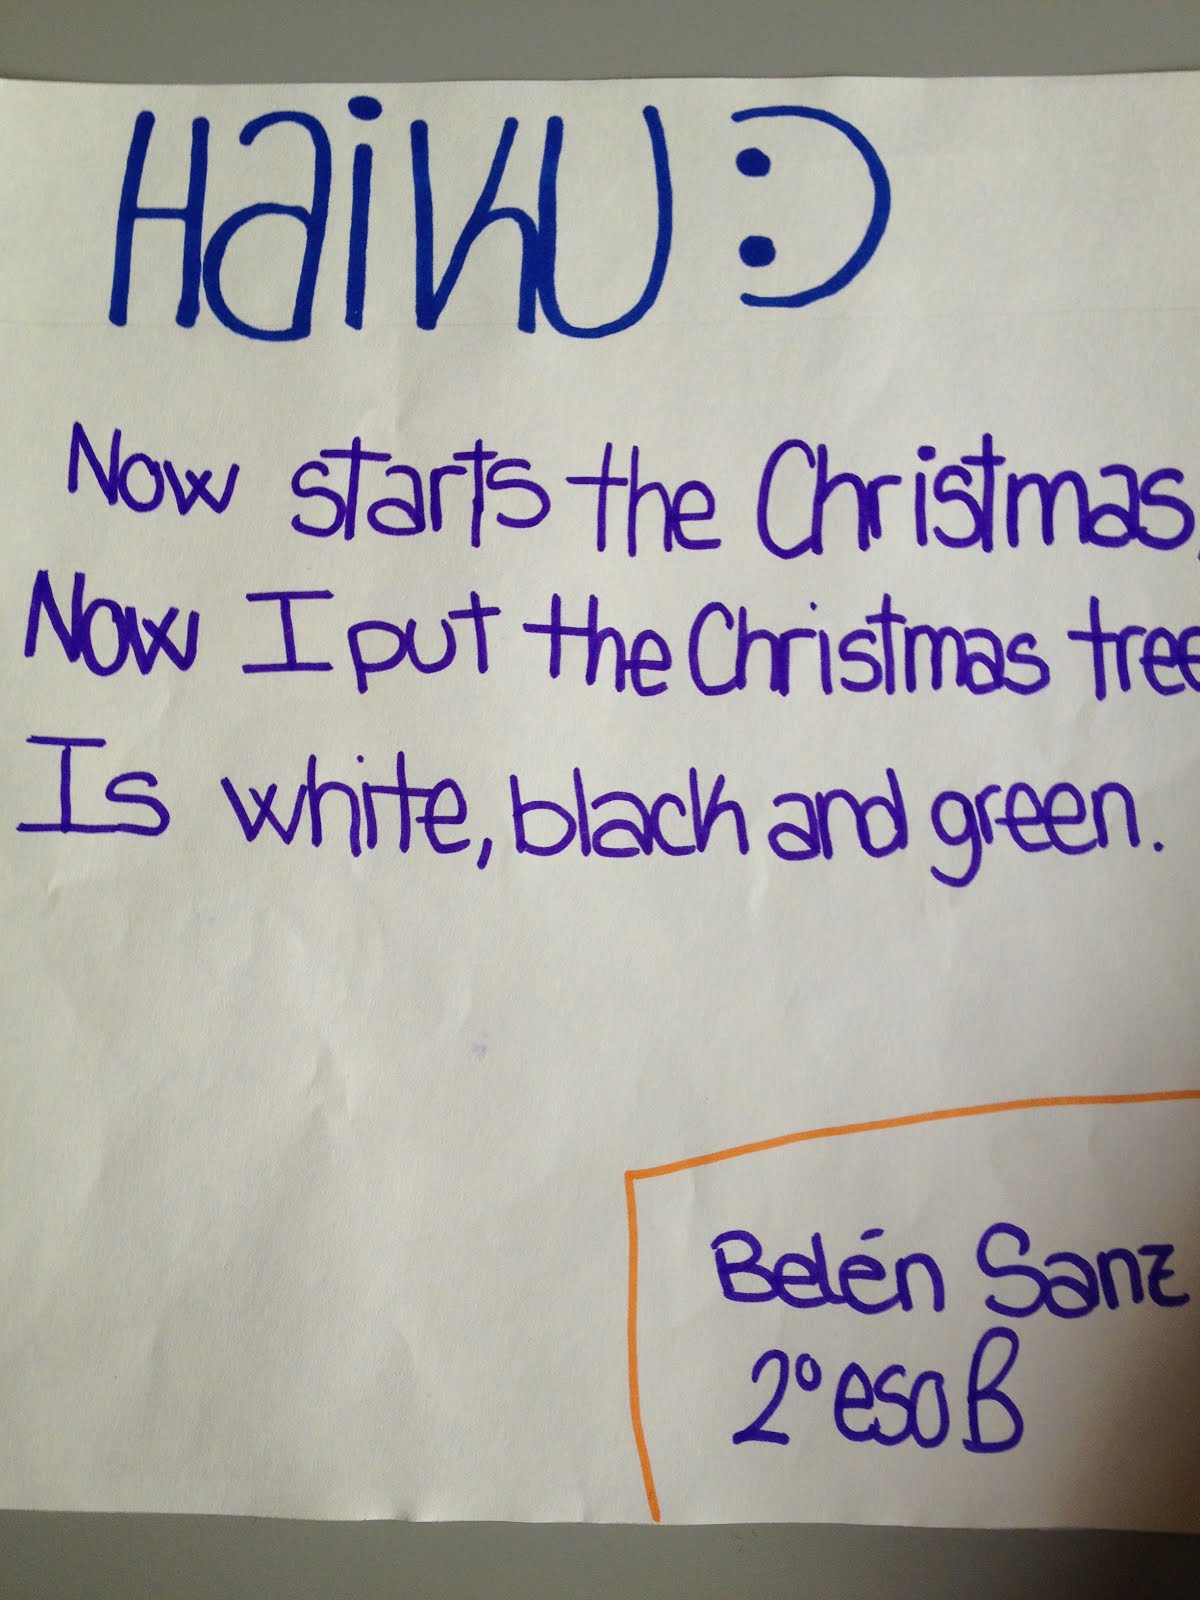 Haiku :)
Now starts the Christmas,
Now I put the Christmas tree
Is white, black and green.
Belén Sanz
2º eso B